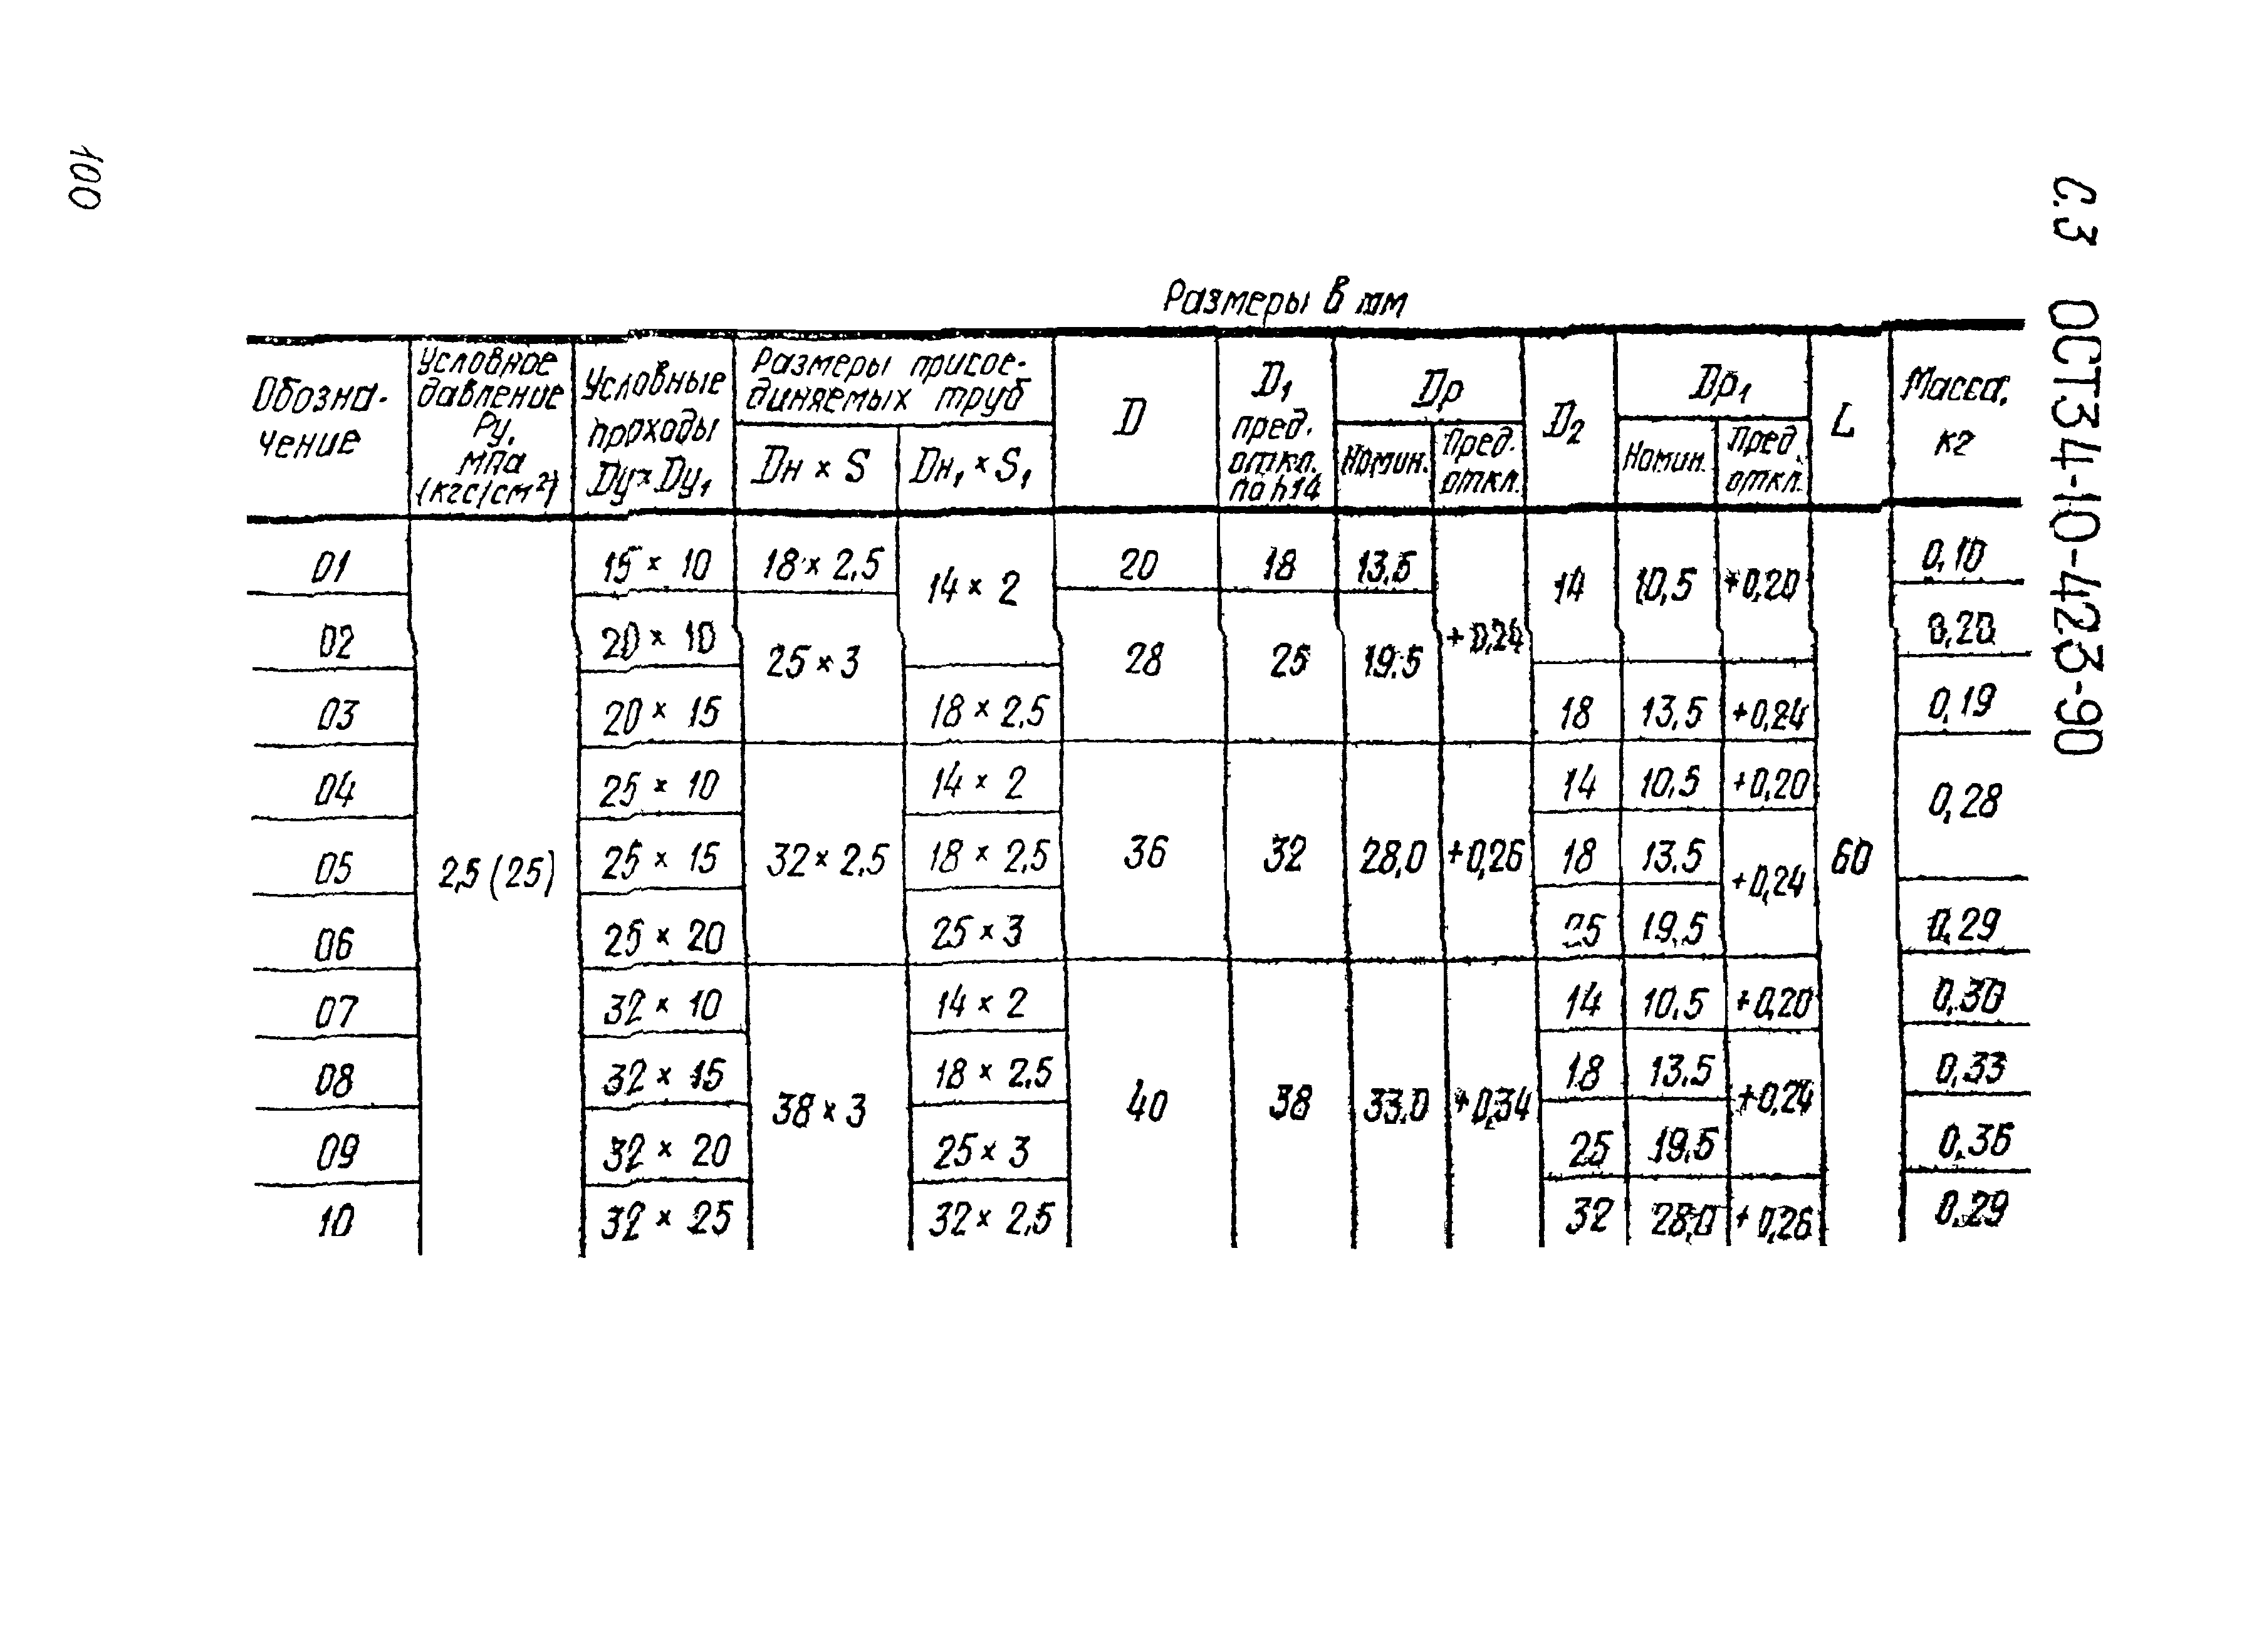 100
С.3 ОСТ34-10-423-90
Размеры в мм
Обозна-
чение
Условное
давление
Ру,
МПа
(кгс/см²)
Условные
проходы
Dу × Dу₁
Размеры присое-
диняемых труб
Dн × S
Dн₁ × S₁
D
D₁
пред.
откл.
по h14
Dр
Номин.
Пред.
откл.
D₂
Dр₁
Номин.
Пред.
откл.
L
Масса,
кг
01 2,5 (25) 15 × 10 18 × 2,5 14 × 2 20 18 13,5 +0,24 14 10,5 +0,20 60 0,10
02 20 × 10 25 × 3 28 25 19,5 0,20
03 20 × 15 18 × 2,5 18 13,5 +0,24 0,19
04 25 × 10 32 × 2,5 14 × 2 36 32 28,0 +0,26 14 10,5 +0,20 0,28
05 25 × 15 18 × 2,5 18 13,5 +0,24
06 25 × 20 25 × 3 25 19,5 0,29
07 32 × 10 38 × 3 14 × 2 40 38 33,0 +0,34 14 10,5 +0,20 0,30
08 32 × 15 18 × 2,5 18 13,5 +0,24 0,33
09 32 × 20 25 × 3 25 19,5 0,36
10 32 × 25 32 × 2,5 32 28,0 +0,26 0,29